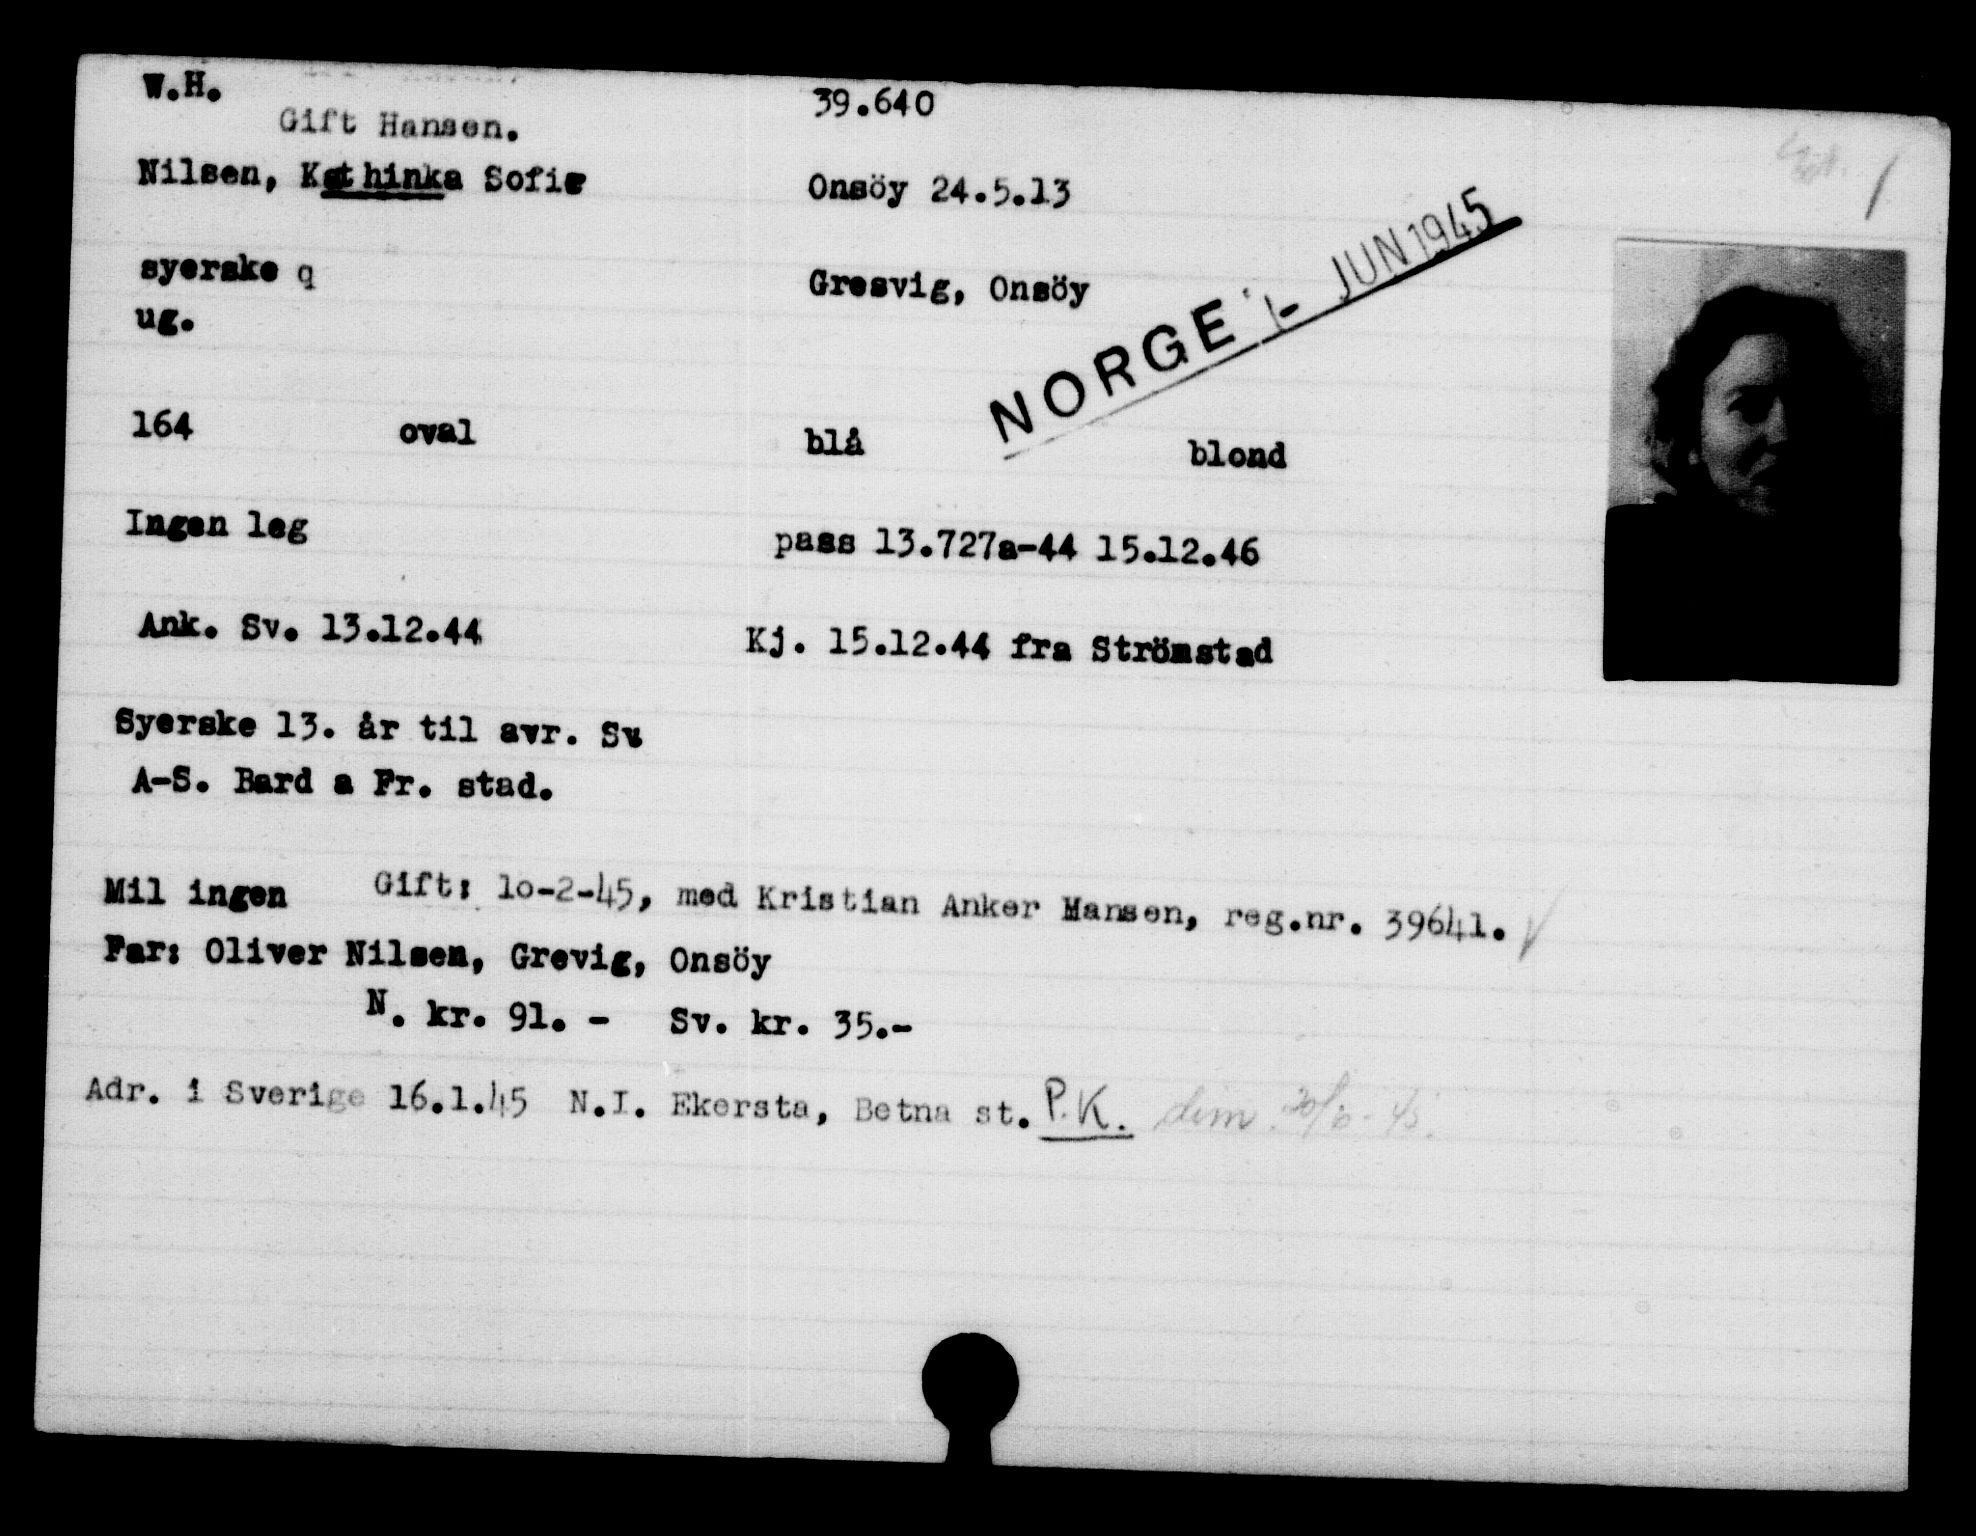 W.H.
Gift Hansen.
39.640
Nilsen, Kathinka Sofie
Onsöy 24.5.13
syerske q
Gresvig, Onsöy
ug.
NORGE 1- JUN 1945
164 oval blå blond
Ingen leg
pass 13.727a-44 15.12.46
Ank. Sv. 13.12.44
Kj. 15.12.44 fra Strömstad
Syerske 13. år til avr. Sv
A-S. Bard a Fr. stad.
Mil ingen
Gift: 1o-2-45, med Kristian Anker Hansen, reg.nr. 39641.
Far: Oliver Nilsen, Grevig, Onsöy
N. kr. 91. - Sv. kr. 35.-
Adr. i Sverige 16.1.45 N.I. Ekersta, Betna st. P.K. dim